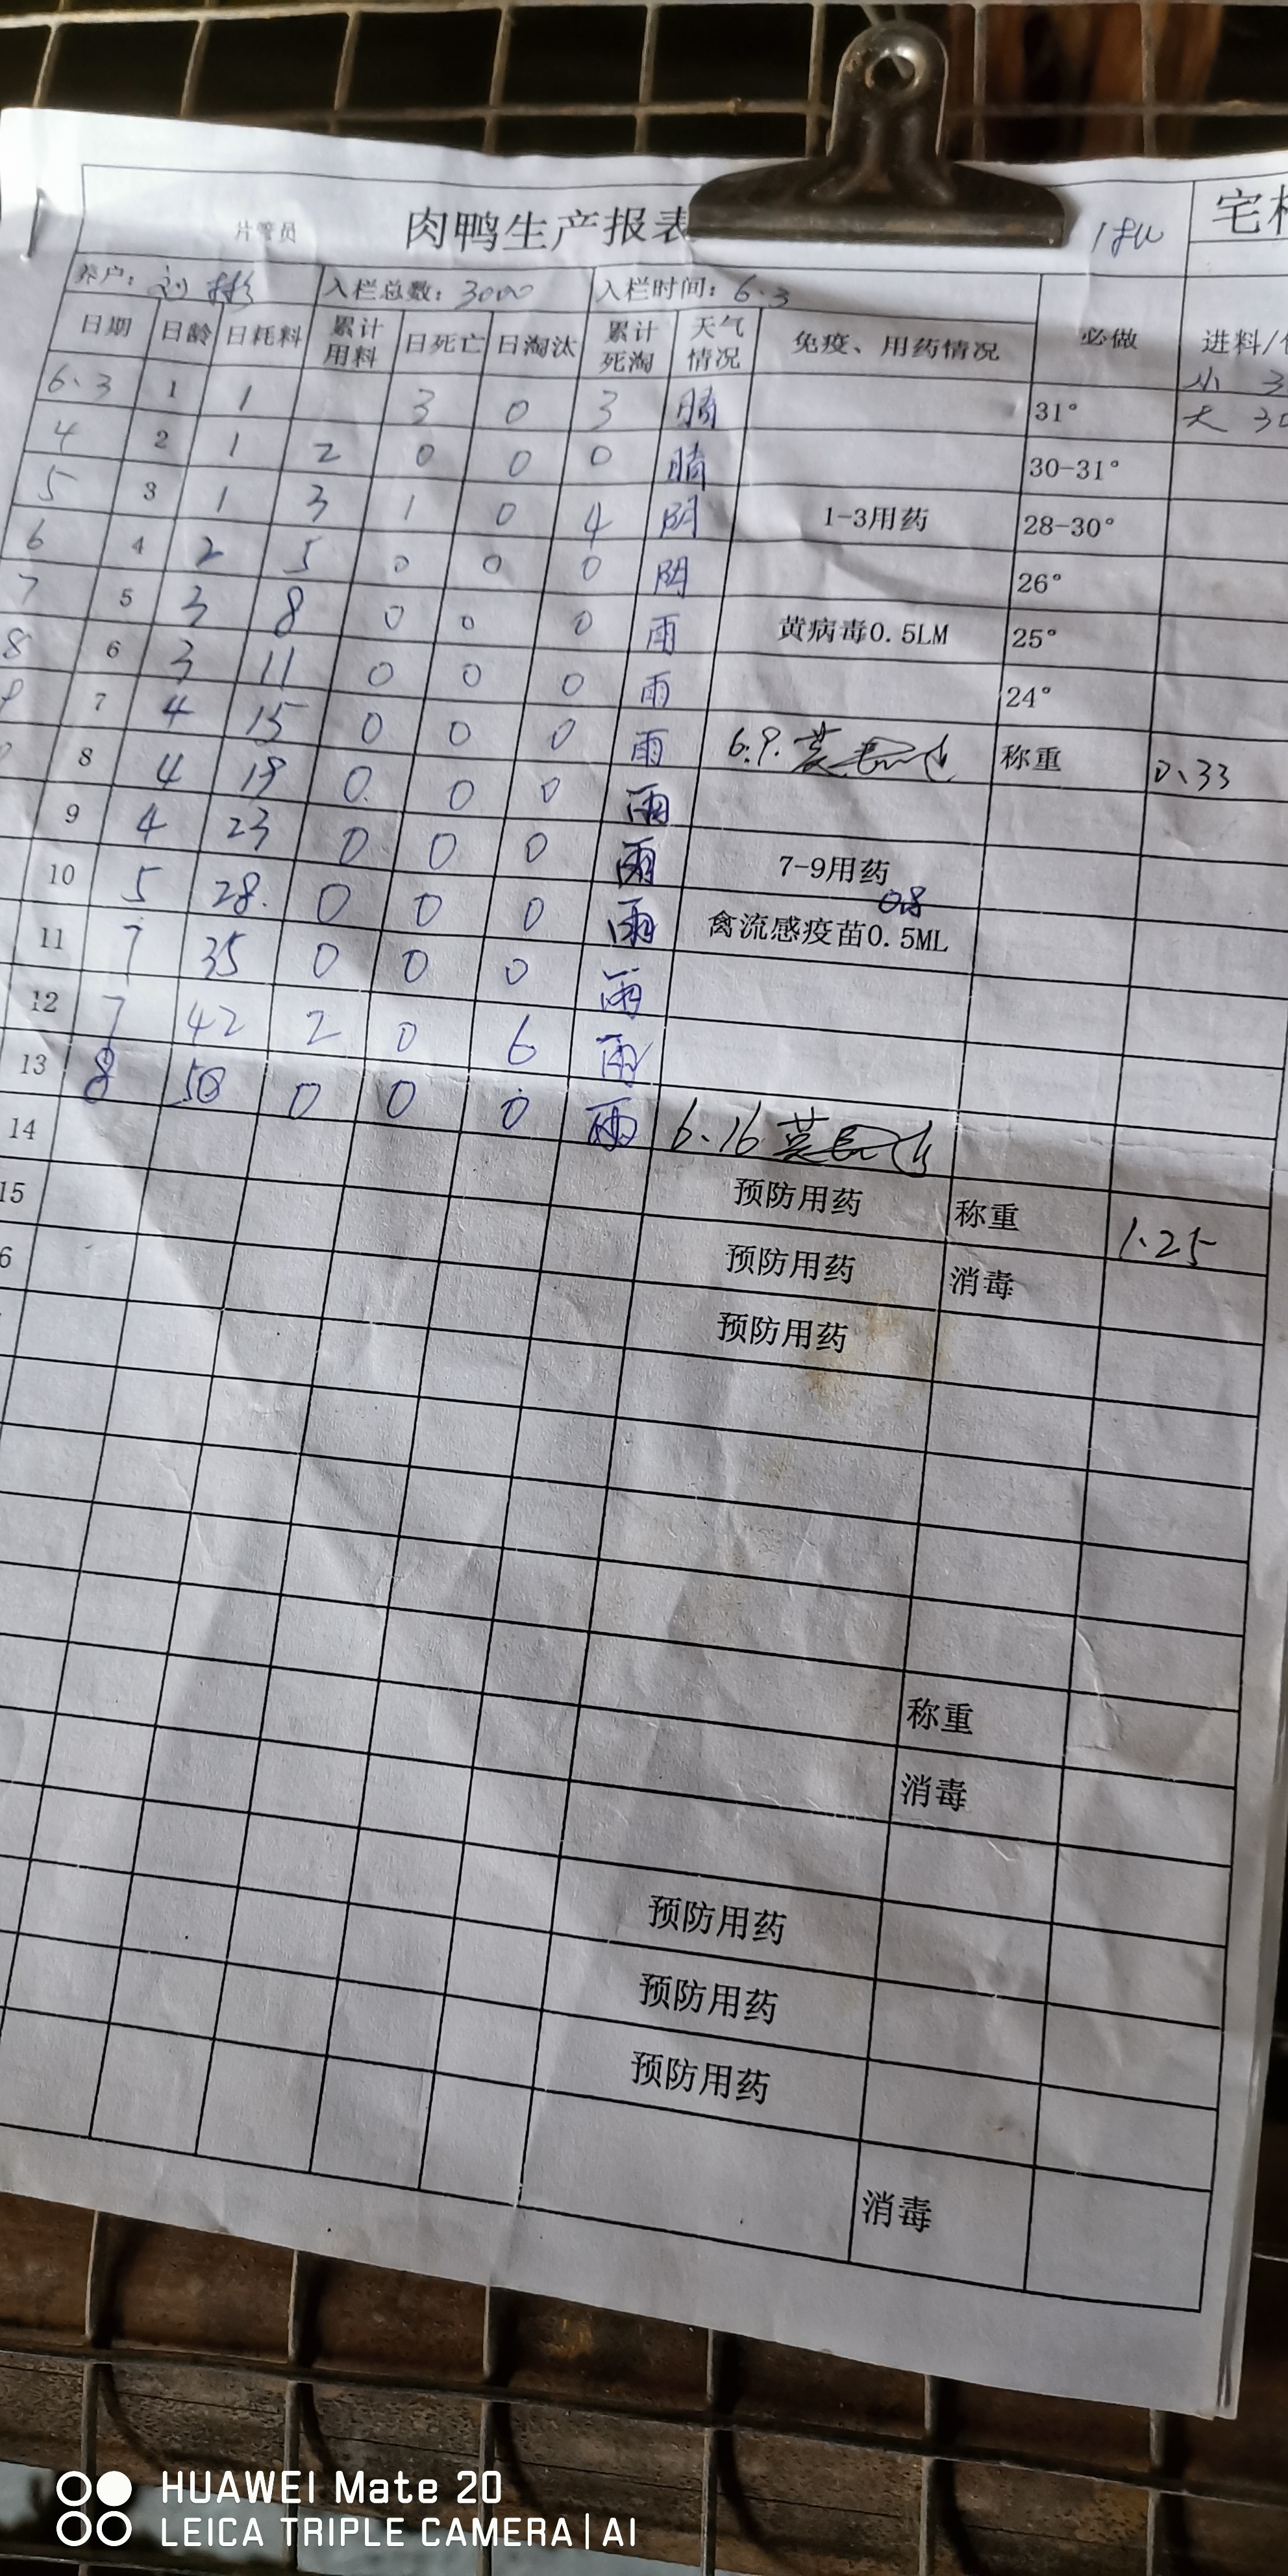 片管员 肉鸭生产报表 宅
养户：刘 入栏总数：3000 入栏时间：6.3
日期 日龄 日耗料 累计用料 日死亡 日淘汰 累计死淘 天气情况 免疫、用药情况 必做 进料/
小 3
6.3 1 1 3 0 3 晴 31° 大 30
4 2 1 2 0 0 0 晴 30-31°
5 3 1 3 1 0 4 阴 1-3用药 28-30°
6 4 2 5 0 0 0 阴 26°
7 5 3 8 0 0 0 雨 黄病毒0.5LM 25°
8 6 3 11 0 0 0 雨 24°
7 4 15 0 0 0 雨 6.9. 称重 0.33
8 4 19 0 0 0 雨
9 4 23 0 0 0 雨 7-9用药
10 5 28 0 0 0 雨 禽流感疫苗0.5ML 0.8
11 7 35 0 0 0 雨
12 7 42 2 0 6 雨
13 8 50 0 0 0 雨 6.16
14 预防用药 称重 1.25
15 预防用药 消毒
6 预防用药
称重
消毒
预防用药
预防用药
预防用药
消毒
HUAWEI Mate 20
LEICA TRIPLE CAMERA | AI